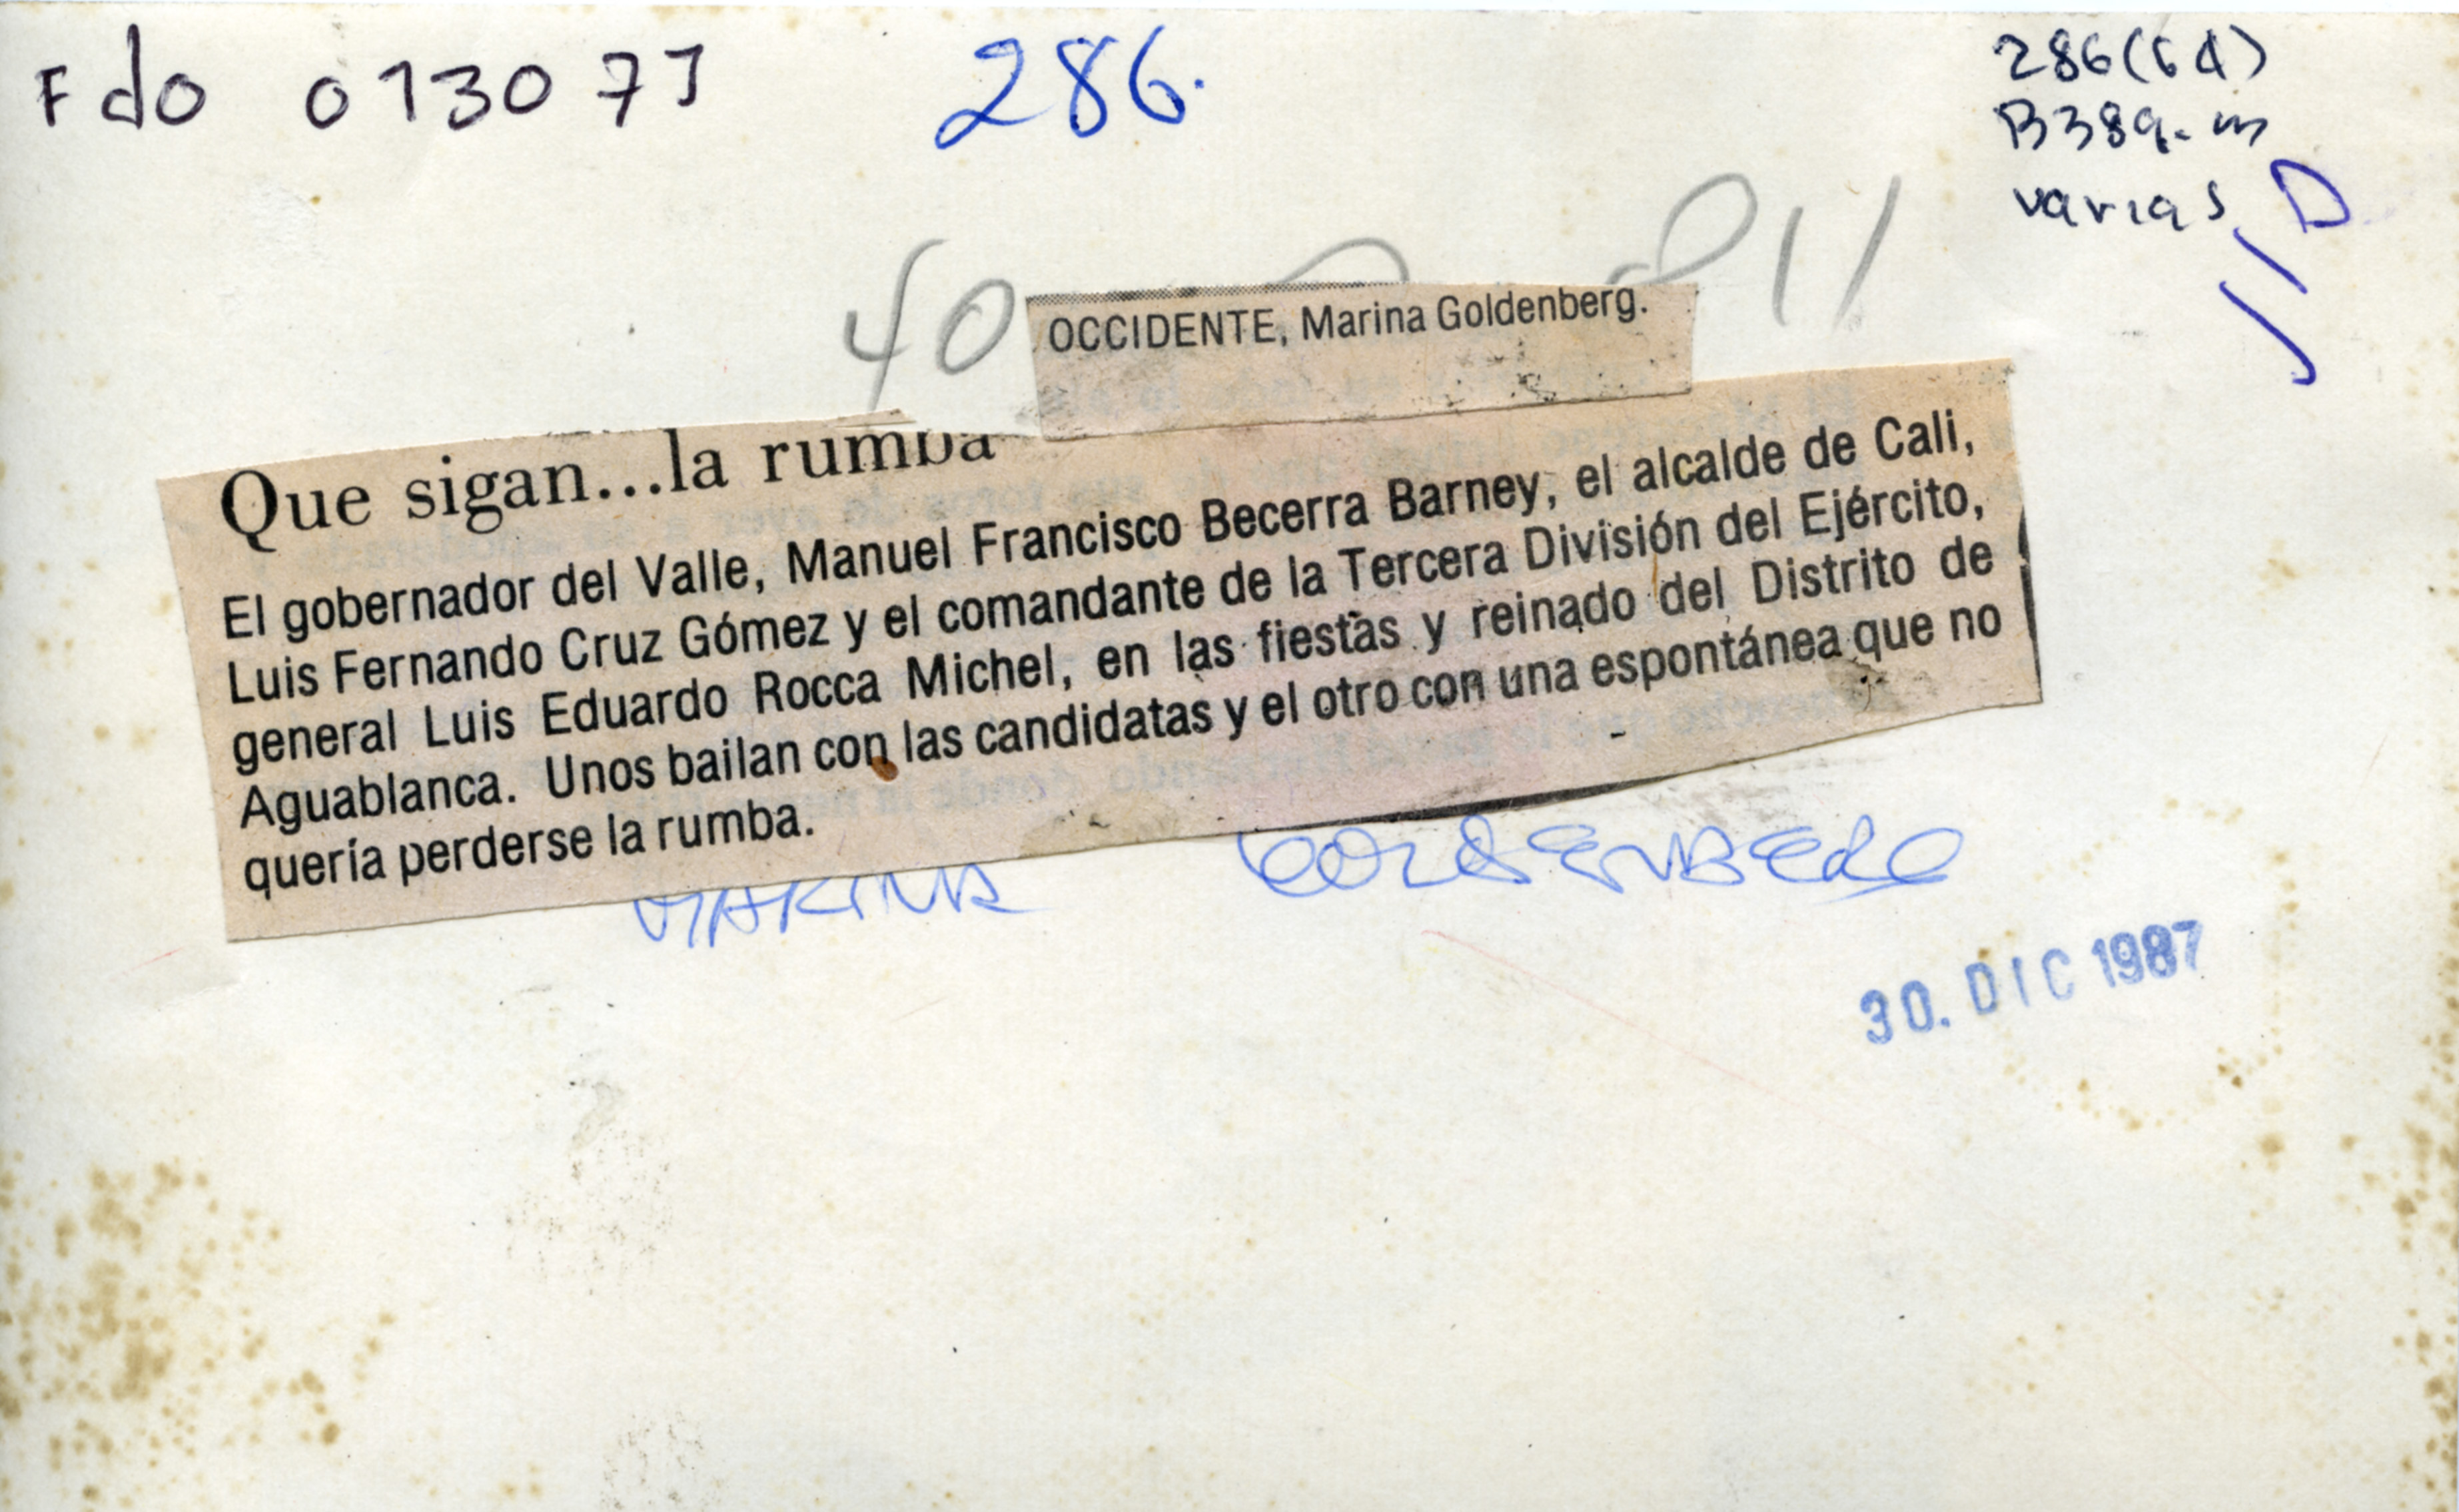 Fdo 013077
286.
286(6d)
B389-m
varias
D
40 011
OCCIDENTE, Marina Goldenberg.
Que sigan...la rumba
El gobernador del Valle, Manuel Francisco Becerra Barney, el alcalde de Cali,
Luis Fernando Cruz Gómez y el comandante de la Tercera División del Ejército,
general Luis Eduardo Rocca Michel, en las fiestas y reinado del Distrito de
Aguablanca. Unos bailan con las candidatas y el otro con una espontánea que no
quería perderse la rumba.
MARINA GOLDENBERG
30. DIC 1987